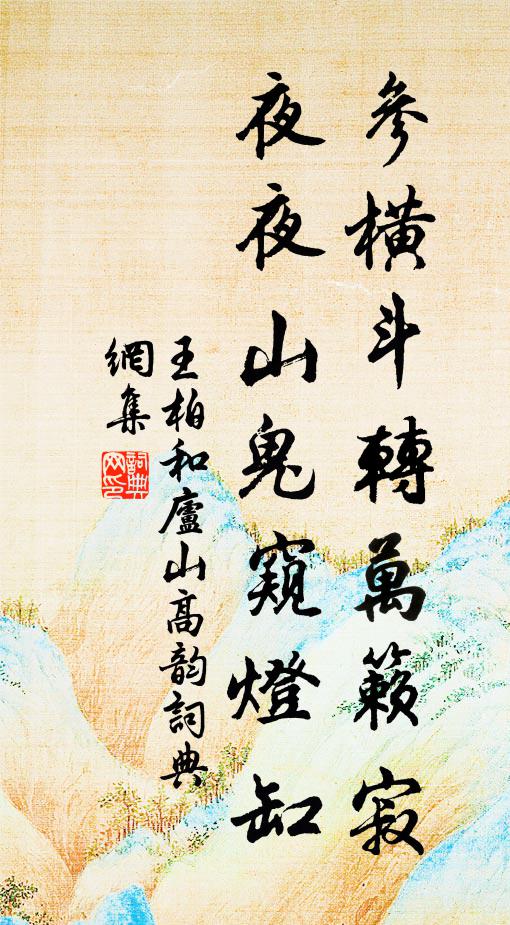 參橫斗轉萬籟寂
夜夜山鬼窺燈缸
王柏和廬山高韵詞典
網集
詞典
网印